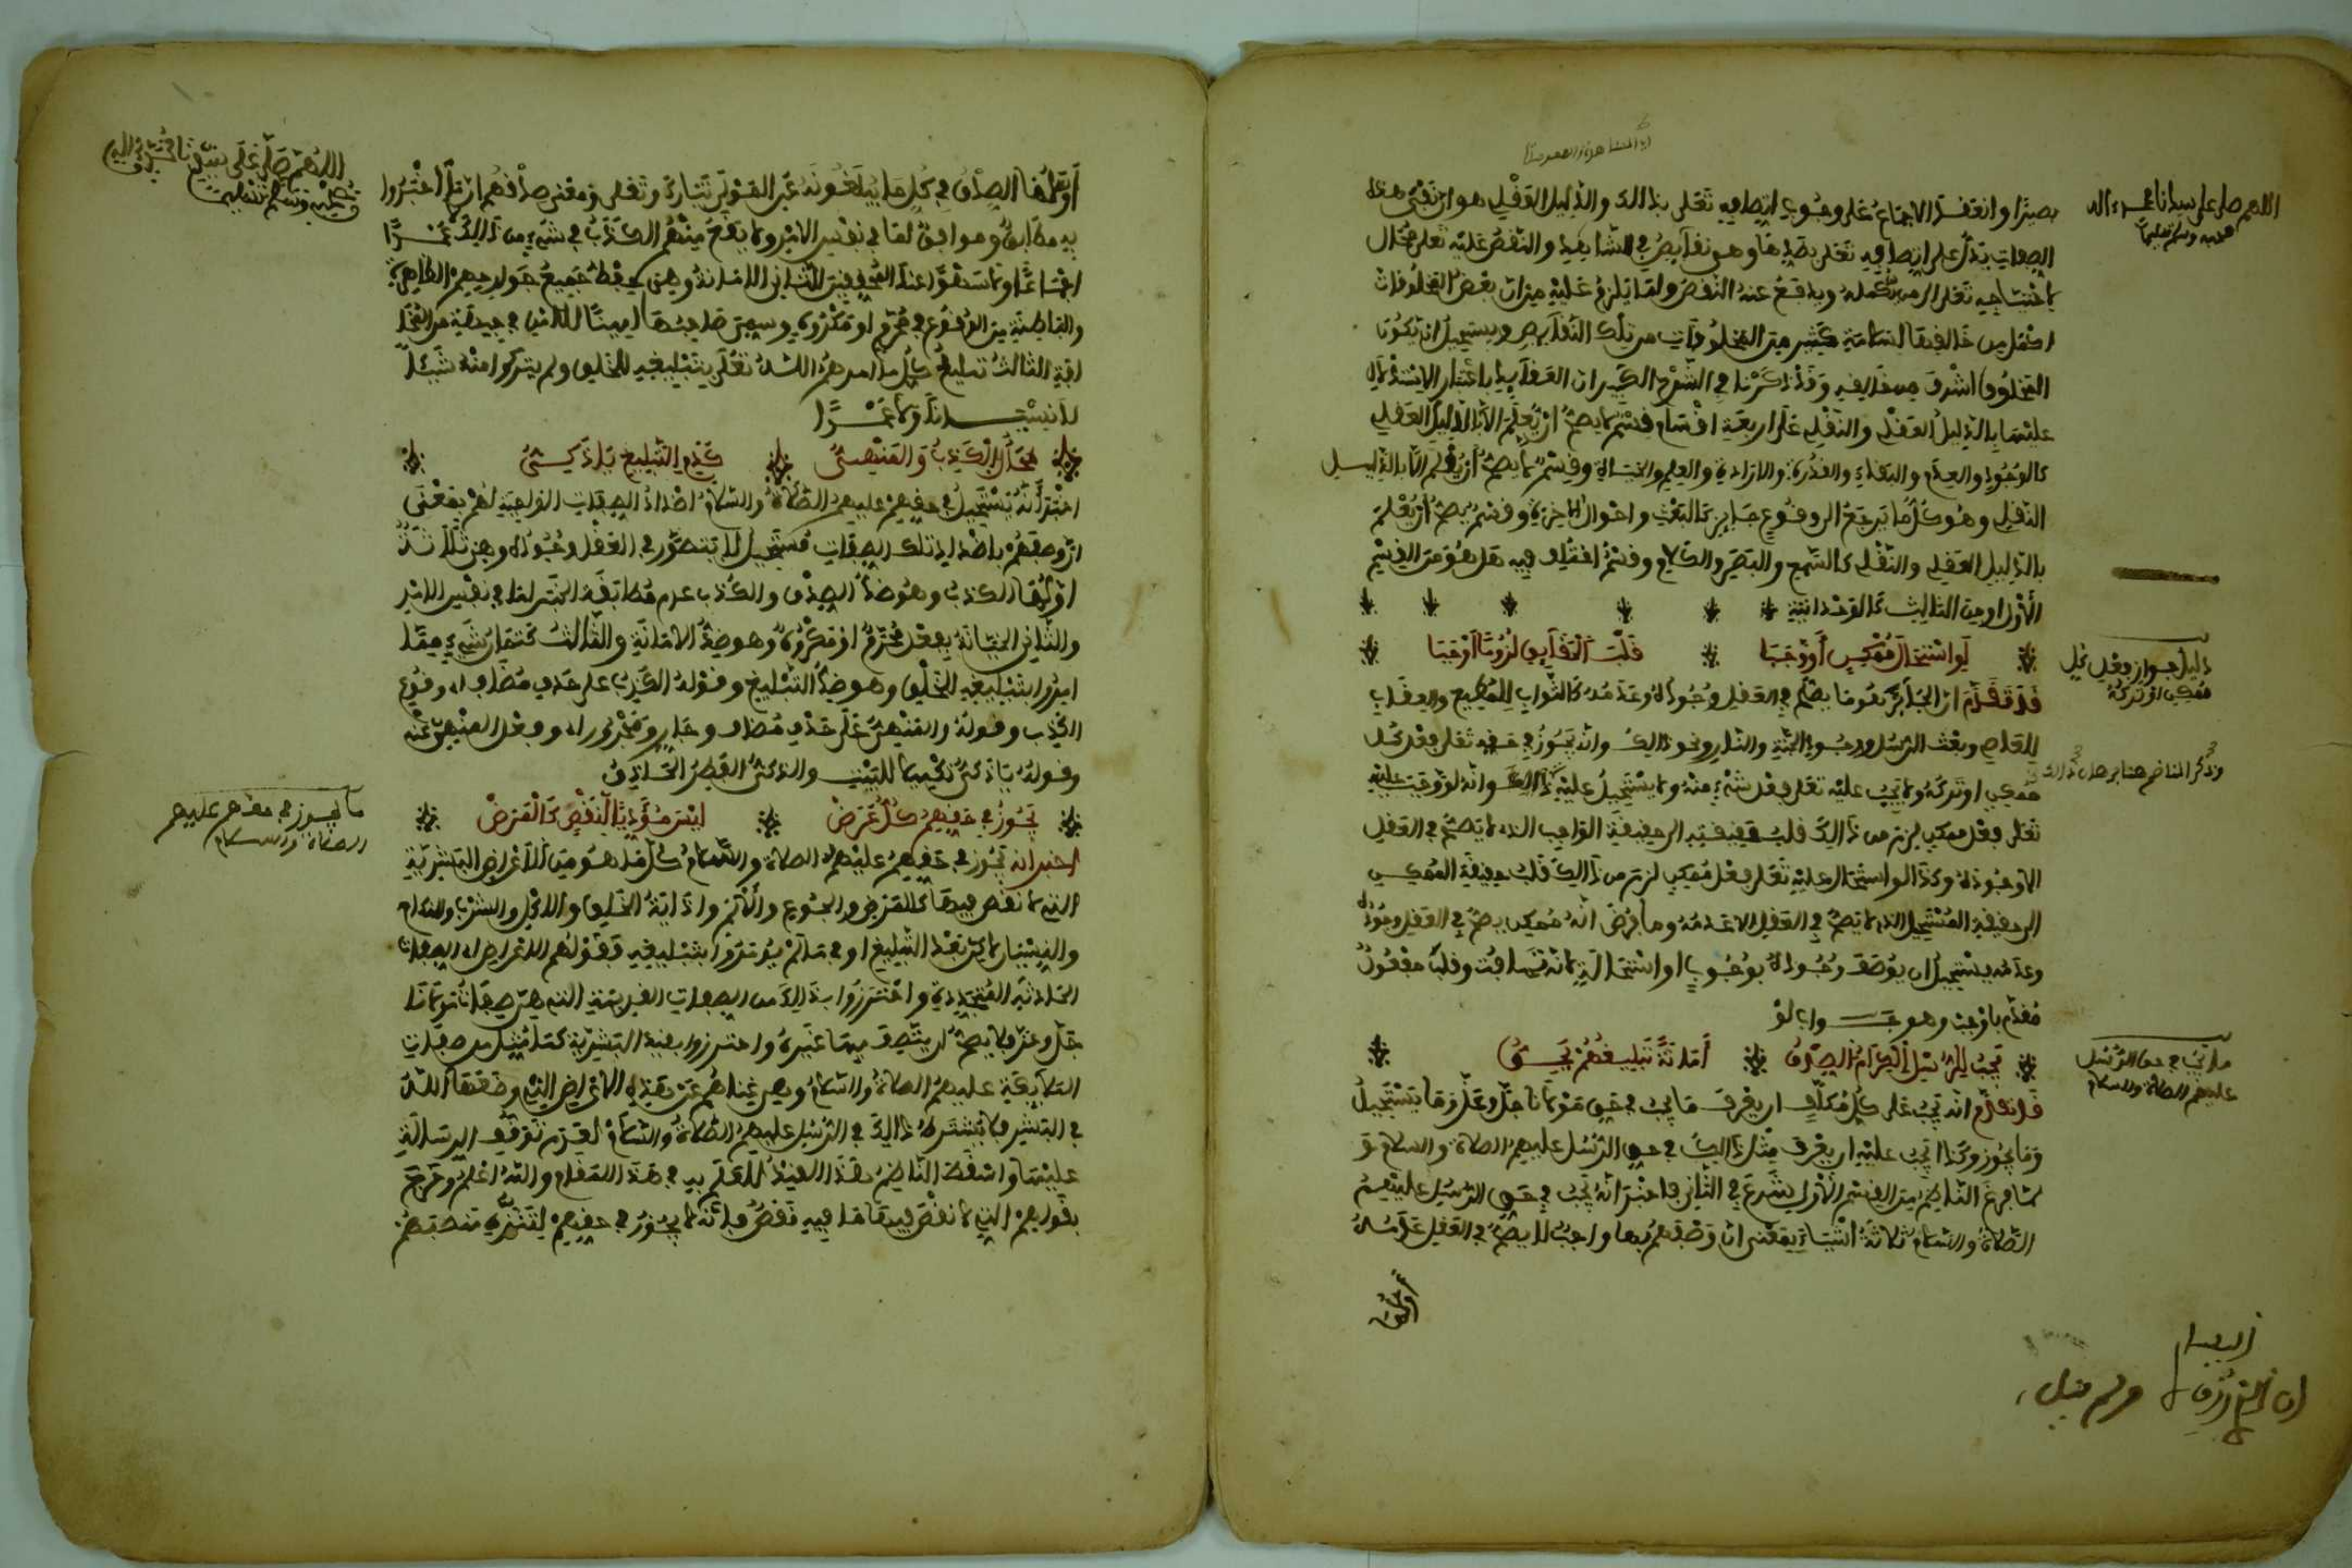 اللهم صل على سيدنا محمد وءاله
وصحبه وسلم تسليما
بصيرا وانعقد الاجماع على وجوب اتصافه تعلى بذالك والدليل العقلي هو ان نفي هذه
الصفات يدل على اتصافه تعلى بضدها وهو نقايص في الشاهد والنقص عليه تعلى محال
لاحتياجه تعلى الى من يكمله ويدفع عنه النقص ولما يلزم عليه من ان بعض المخلوقات
اكمل من خالقها لسلامة كثير من المخلوقات من تلك النقايص ويستحيل ان يكون
المخلوق اشرف من خالقه وقد ذكرنا في الشرح الكبير ان العقايد باعتبار الاستدلال
عليها بالدليل العقلي والنقلي على اربعة اقسام قسم لا يصح ان يعلم الا بالدليل العقلي
كالوجود والقدم والبقاء والقدرة والارادة والعلم والحياة وقسم لا يصح ان يعلم الا بالدليل
النقلي وهو كل ما يرجع الى وقوع جايز كالبعث واحوال الاخرة وقسم يصح ان يعلم
بالدليل العقلي والنقلي كالسمع والبصر والكلام وقسم اختلف فيه هل هو من القسم
الاول او من الثالث كالوحدانية
لو استحال ممكن أو وجبا قلب الحقايق لزوما أوجبا
دليل جواز فعل كل
ممكن او تركه
قد تقدم ان الجايز هو ما يصح في العقل وجوده وعدمه كالثواب للمطيع والعقاب
للعاصي وبعث الرسل ووجود الجنة والنار ونحو ذالك وانه يجوز في حقه تعلى فعل كل
وذكر الناظم هنا برهان ذالك
ممكن او تركه ولا يجب عليه تعلى فعل شيء منه ولا يستحيل عليه ذالك وانه لو وجب عليه
تعلى فعل ممكن لزم من ذالك قلب حقيقته الى حقيقة الواجب الذي لا يصح في العقل
الا وجوده وكذا لو استحال عليه تعلى فعل ممكن لزم من ذالك قلب حقيقة الممكن
الى حقيقة المستحيل الذي لا يصح في العقل الا عدمه وما فرض انه ممكن يصح في العقل وجوده
وعدمه يستحيل ان يوصف وجوده بوجوب او استحالة لانه تهافت وقلب مفعول
مقدم باوجب وهو جواب لو
يجب للرسل الكرام الصدق أمانة تبليغهم يحق
ما يجب في حق الرسل
عليهم الصلاة والسلام
قد تقدم انه يجب على كل مكلف ان يعرف ما يجب في حق مولانا جل وعلا وما يستحيل
وما يجوز وكذا يجب عليه ان يعرف مثل ذالك في حق الرسل عليهم الصلاة والسلام و
لما فرغ الناظم من القسم الاول شرع في الثاني فاخبر انه يجب في حق الرسل عليهم
الصلاة والسلام ثلاثة اشياء بمعنى ان وصفهم بها واجب لا يصح في العقل عدمه
أولها
اللهم صل على سيدنا محمد وءاله
وصحبه وسلم تسليما
أولها الصدق في كل ما يبلغونه عن المولى تبارك وتعلى ومعنى صدقهم ان ما اخبروا
به مطابق وموافق لما في نفس الامر ولا يقع منهم الكذب في شيء من ذالك عمدا
اجماعا ولا سهوا عند المحققين الثاني الامانة وهي حفظ جميع جوارحهم الظاهرة
والباطنة من الوقوع في محرم او مكروه وسمي صاحبها امينا للامن في جهته من المخا
لفة الثالث تبليغ كل ما امرهم الله تعلى بتبليغه للخلق ولم يتركوا منه شيئا
لا نسيانا ولا عمدا
محال الكذب والمنهي كعدم التبليغ يا ذكي
اخبر انه يستحيل في حقهم عليهم الصلاة والسلام اضداد الصفات الواجبة لهم بمعنى
ان وصفهم باضداد تلك الصفات مستحيل لا يتصور في العقل وجوده وهي ثلاثة
اولها الكذب وهو ضد الصدق والكذب عدم مطابقة الخبر لما في نفس الامر
والثاني الخيانة بفعل محرم او مكروه وهو ضد الامانة والثالث كتمان شيء مما
امروا بتبليغه للخلق وهو ضد التبليغ وقوله الكذب على حذف مضاف اي وقوع
الكذب وقوله والمنهي على حذف مضاف وجار ومجرور اي وفعل المنهي عنه
وقوله يا ذكي تكميل للبيت والذكي الفطن الحاذق
يجوز في حقهم كل عرض ليس مؤديا لنقص كالمرض
ما يجوز في حقهم عليهم
الصلاة والسلام
اخبر انه يجوز في حقهم عليهم الصلاة والسلام كل ما هو من الاعراض البشرية
التي لا نقص فيها كالمرض والجوع والالم واذاية الخلق والاكل والشرب والنكاح
والنسيان لاكن بعد التبليغ او في ما لم يومروا بتبليغه فقولهم الاعراض اي الصفات
الحادثة المتجددة واحترزوا بذالك من الصفات القديمة التي هي صفات مولانا
جل وعز فلا يصح ان يتصف بها غيره واحترزوا بقيد البشرية كما مثل من صفات
الملايكة عليهم الصلاة والسلام وهي غناهم عن هذه الاعراض التي خلقها الله
في البشر فلا يشترط ذالك في الرسل عليهم الصلاة والسلام لعدم توقف الرسالة
عليها واسقط الناظم هذا القيد للعلم به في هذا المقام والله اعلم وخرج
بقولهم التي لا نقص فيها ما فيه نقص فانه لا يجوز في حقهم لتنزه منصبهم